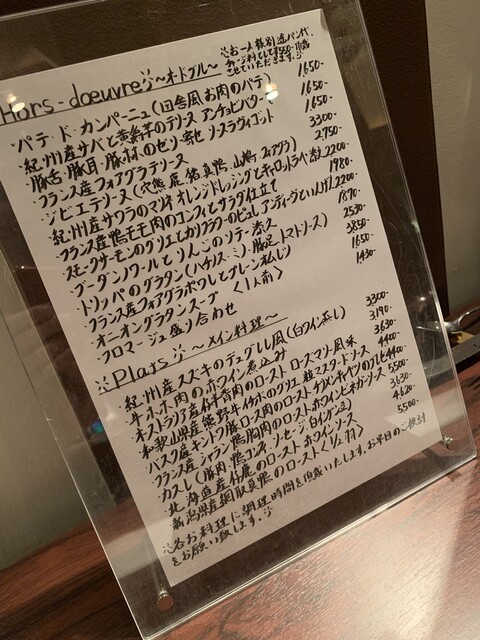 Hors-doeuvre ～オードブル～ ※お一人様別途パン代、
チャージ料として¥550-頂戴
させていただきます。
・パテ・ド・カンパーニュ(田舎風お肉のパテ) 1650-
・紀州産サバと黄金芋のテリーヌ アンチョビバター 1650-
・豚舌・豚耳・豚材のゼリー寄せ ソースラヴィゴット 1650-
・フランス産フォアグラテリーヌ 3300-
・ジビエテリーヌ(穴熊、鹿、猪、真鴨、山鳩、フォアグラ) 2750-
・紀州産サワラのマリネ オレンジドレッシングとキャロットラペ添え 2200-
・フランス産鴨モモ肉のコンフィとサラダ仕立て 1980-
・スモークサーモンのグリエとカリフラワーのピュレ アンディーブといんげん 2200-
・ブーダンノワールとりんごのソテー添え 1870-
・トリッパのグラタン(ハチノス・ミノ・豚足 トマトソース) 2530-
・フランス産フォアグラポワレとプレーンオムレツ 3850-
・オニオングラタンスープ <1人前> 1650-
・フロマージュ盛り合わせ 1430-
※Plats※ ～メイン料理～
・紀州産スズキのデュグレレ風(白ワイン蒸し) 3300-
・牛ホホ肉の赤ワイン煮込み 3190-
・オーストラリア産仔羊背肉のロースト ローズマリー風味 3630-
・和歌山県産熊野牛イチボのグリエ 粒マスタードソース 4400-
・バスク産キントア豚ロース肉のロースト 4400-
・フランス産シャラン鴨胸肉のロースト 赤ワインビネガーソース 5500-
・カスレ(豚肉、鴨コンフィ、ソーセージ、白インゲン豆) 3630-
・北海道産仔鹿のロースト 赤ワインソース 4620-
・新潟県産網取真鴨のロースト<1/2羽> 5500-
※各お料理に調理時間を頂戴いたします。お早目のご注文
をお願い致します。※